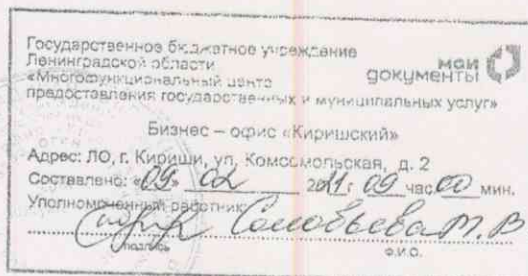 Государственное бюджетное учреждение
Ленинградской области
«Многофункциональный центр
предоставления государственных и муниципальных услуг»
мои
документы
Бизнес – офис «Киришский»
Адрес: ЛО, г. Кириши, ул. Комсомольская, д. 2
Составлено: «09» 02 2021г. 09 час. 00 мин.
Уполномоченный работник:
Соловьева М. В
подпись
Ф.И.О.